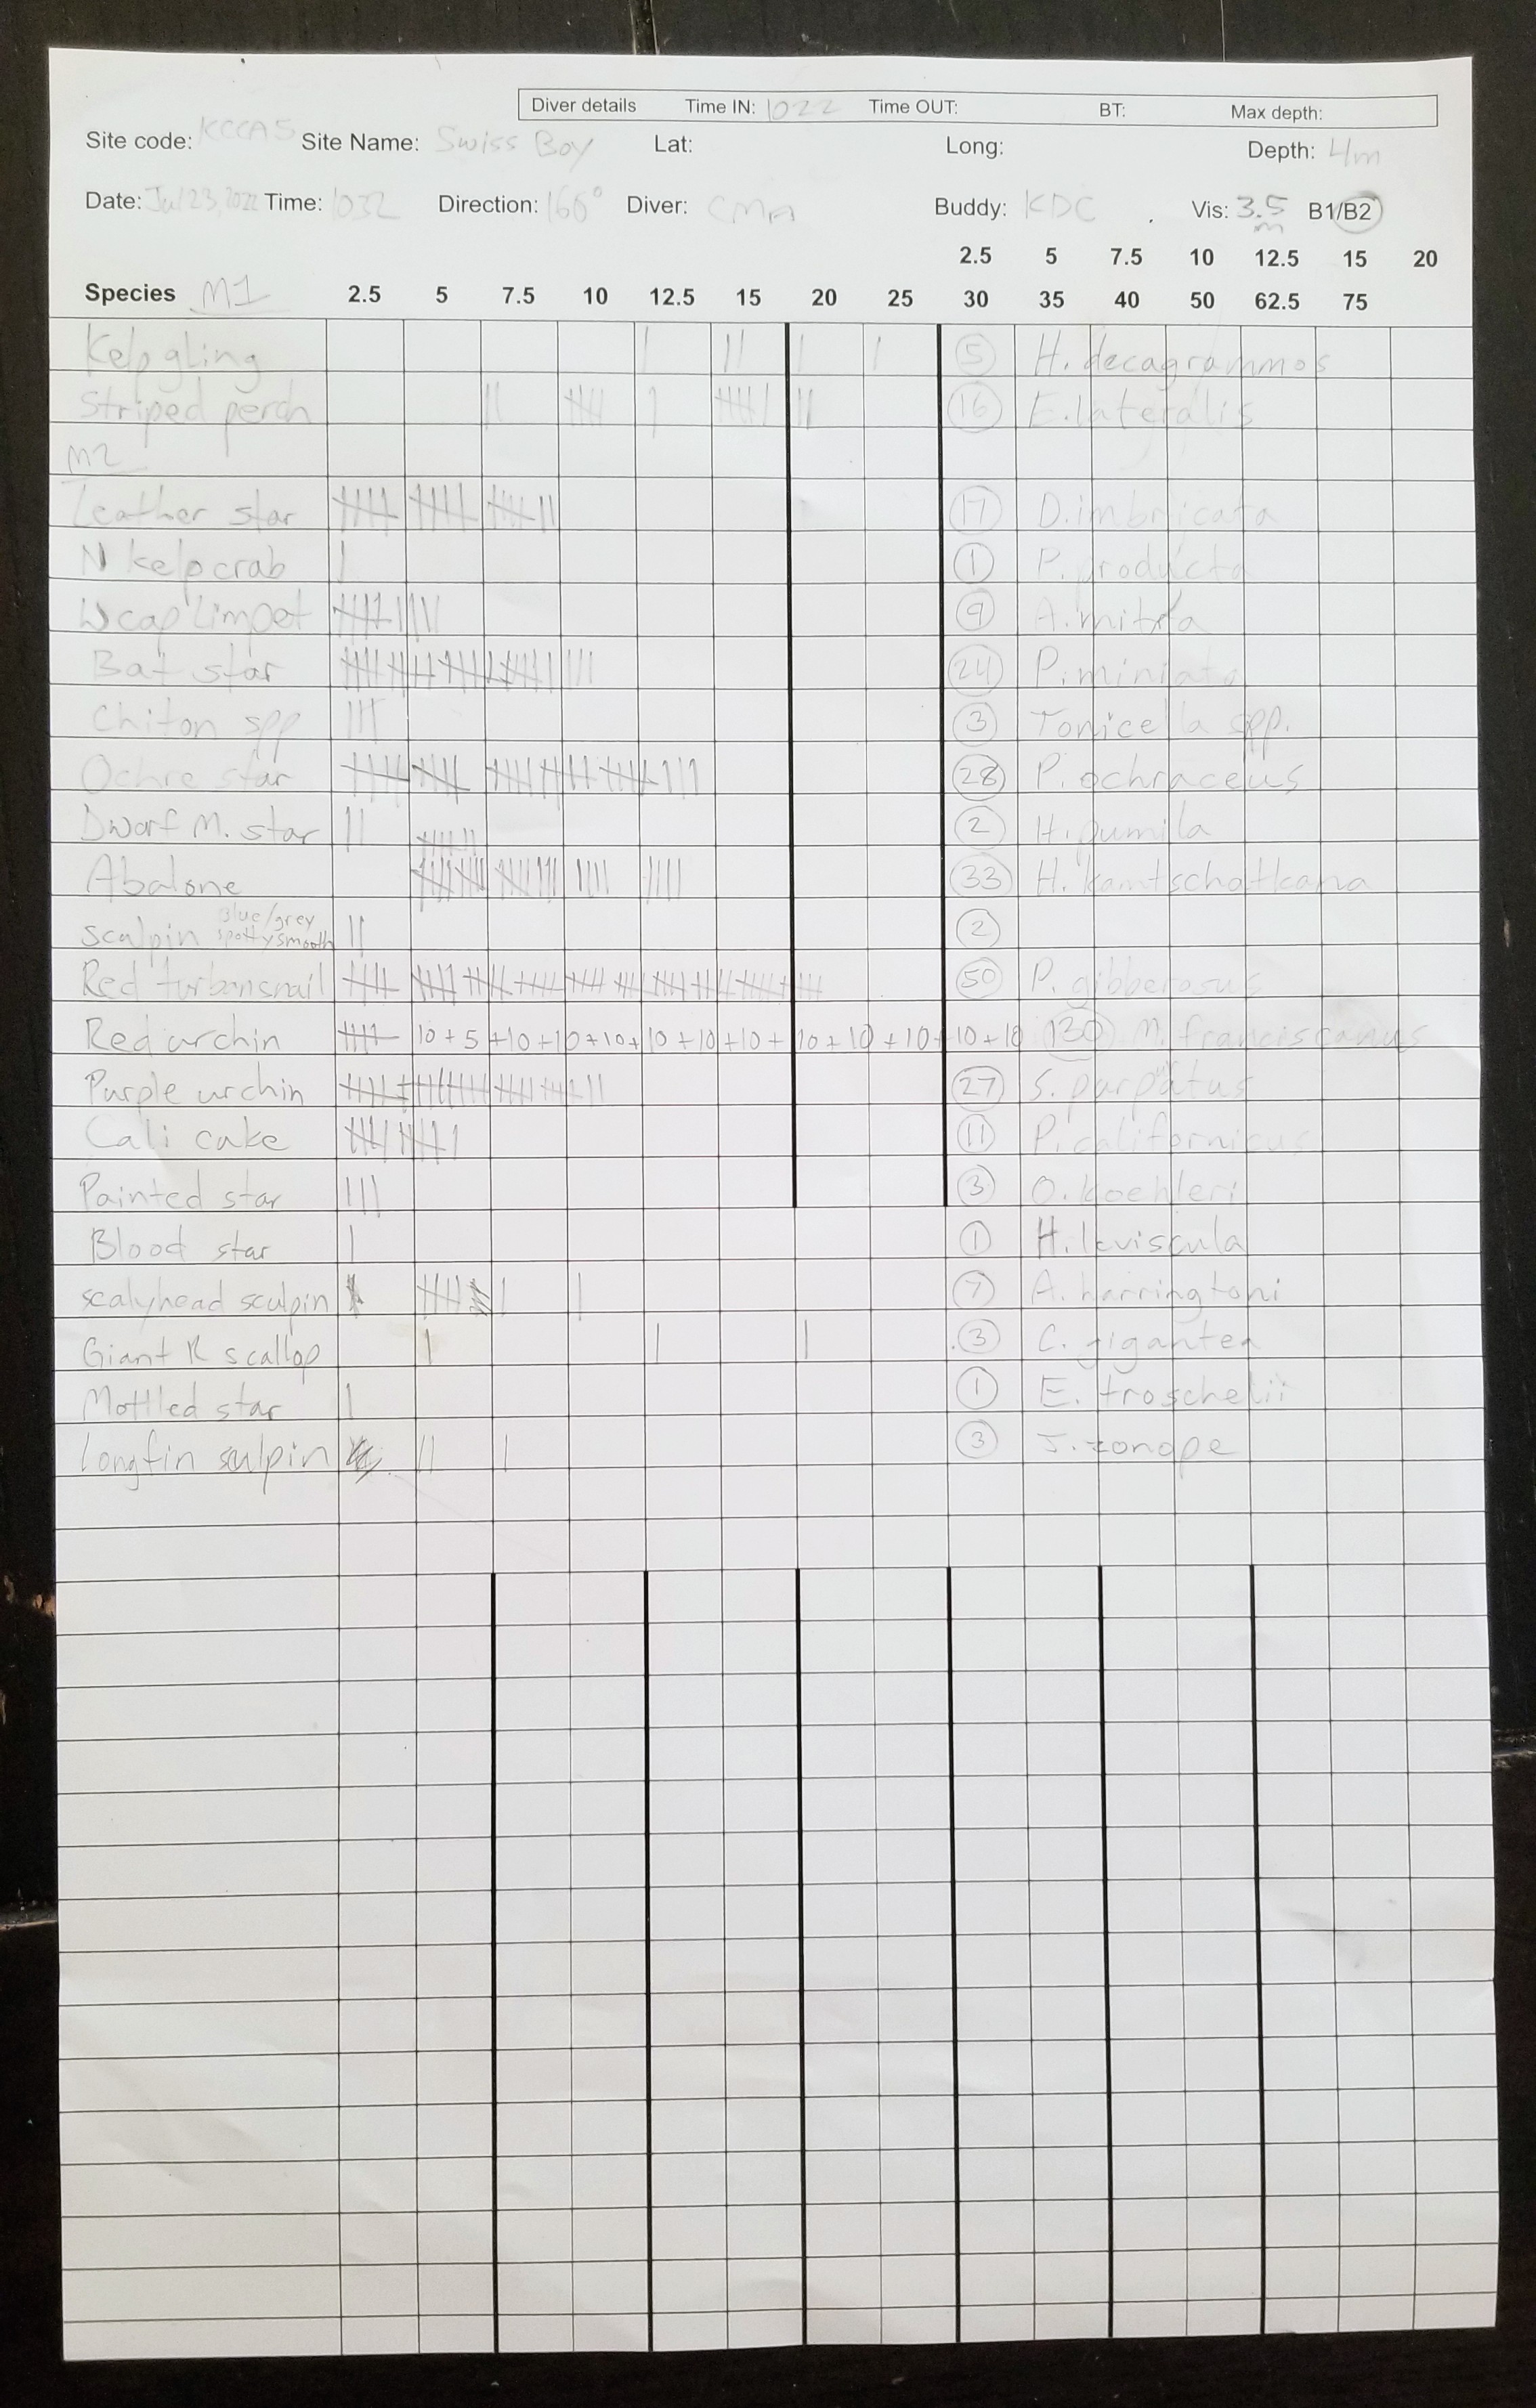 Diver details Time IN: 1022 Time OUT: BT: Max depth:
Site code: KCCA5 Site Name: Swiss Boy Lat: Long: Depth: 4m
Date: Jul 23, 2022 Time: 1032 Direction: 160° Diver: CMA Buddy: KDC Vis: 3.5 m B1/B2
2.5 5 7.5 10 12.5 15 20
Species M1 2.5 5 7.5 10 12.5 15 20 25 30 35 40 50 62.5 75
Kelpgling 5 H. decagrammos
Striped perch 16 E. lateralis
M2
Leather star 17 D. imbricata
N kelp crab 1 P. producta
Wcap limpet 9 A. mitra
Bat star 24 P. miniata
Chiton spp 3 Tonicella spp.
Ochre star 28 P. ochraceus
Dwarf M. star 2 H. pumila
Abalone 33 H. kamtschatkana
scalpin Blue/grey spotty smooth 2
Red turbansnail 50 P. gibberosus
Red urchin 10+5+10+10+10+10+10+10+10+10+10+10+10 130 M. franciscanus
Purple urchin 27 S. purpatus
Cali cuke 11 P. californicus
Painted star 3 O. koehleri
Blood star 1 H. leviscula
scalyhead sculpin 7 A. harringtoni
Giant R scallop 3 C. gigantea
Mottled star 1 E. troschelii
Longfin sculpin 3 J. zonope